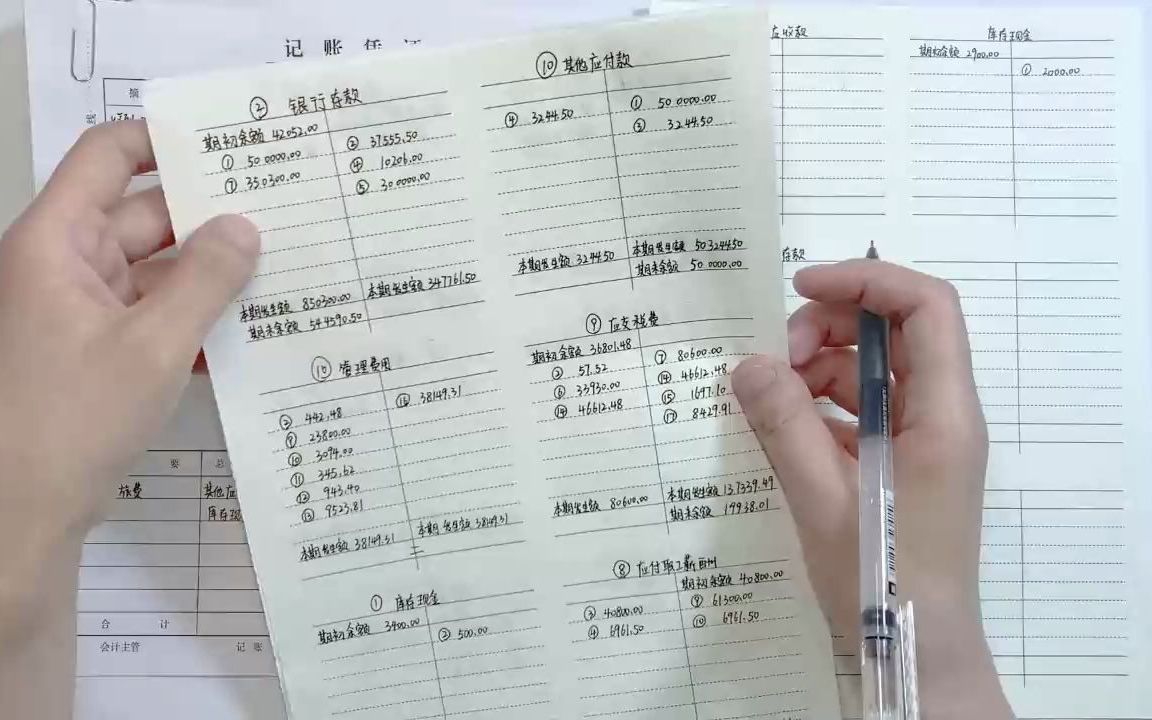 记 账 凭
摘
② 银行存款
期初余额 42052.00
① 500000.00
⑦ 350300.00
② 37555.50
④ 10206.00
⑤ 300000.00
本期发生额 850300.00
本期发生额 347761.50
期末余额 544590.50
⑩ 其他应付款
④ 3244.50
① 500000.00
③ 3244.50
本期发生额 3244.50
本期发生额 503244.50
期末余额 500000.00
管理费用
② 442.48
⑨ 23800.00
⑩ 3094.00
⑪ 345.62
⑫ 943.40
⑬ 9523.81
⑯ 38149.31
本期发生额 38149.31
本期发生额 38149.31
⑨ 应交税费
期初余额 36801.48
② 57.52
⑥ 33930.00
⑭ 46612.48
⑦ 80600.00
⑭ 46612.48
⑮ 1697.10
⑰ 8429.91
本期发生额 80600.00
本期发生额 137339.49
期末余额 19938.01
① 库存现金
期初余额 3400.00
② 500.00
⑧ 应付职工薪酬
期初余额 40800.00
③ 40800.00
④ 6961.50
⑨ 61300.00
⑩ 6961.50
应收款
库存现金
期初余额 2900.00
① 2000.00
存款
要
总
旅费
其他应
库存现
合 计
会计主管
记 账